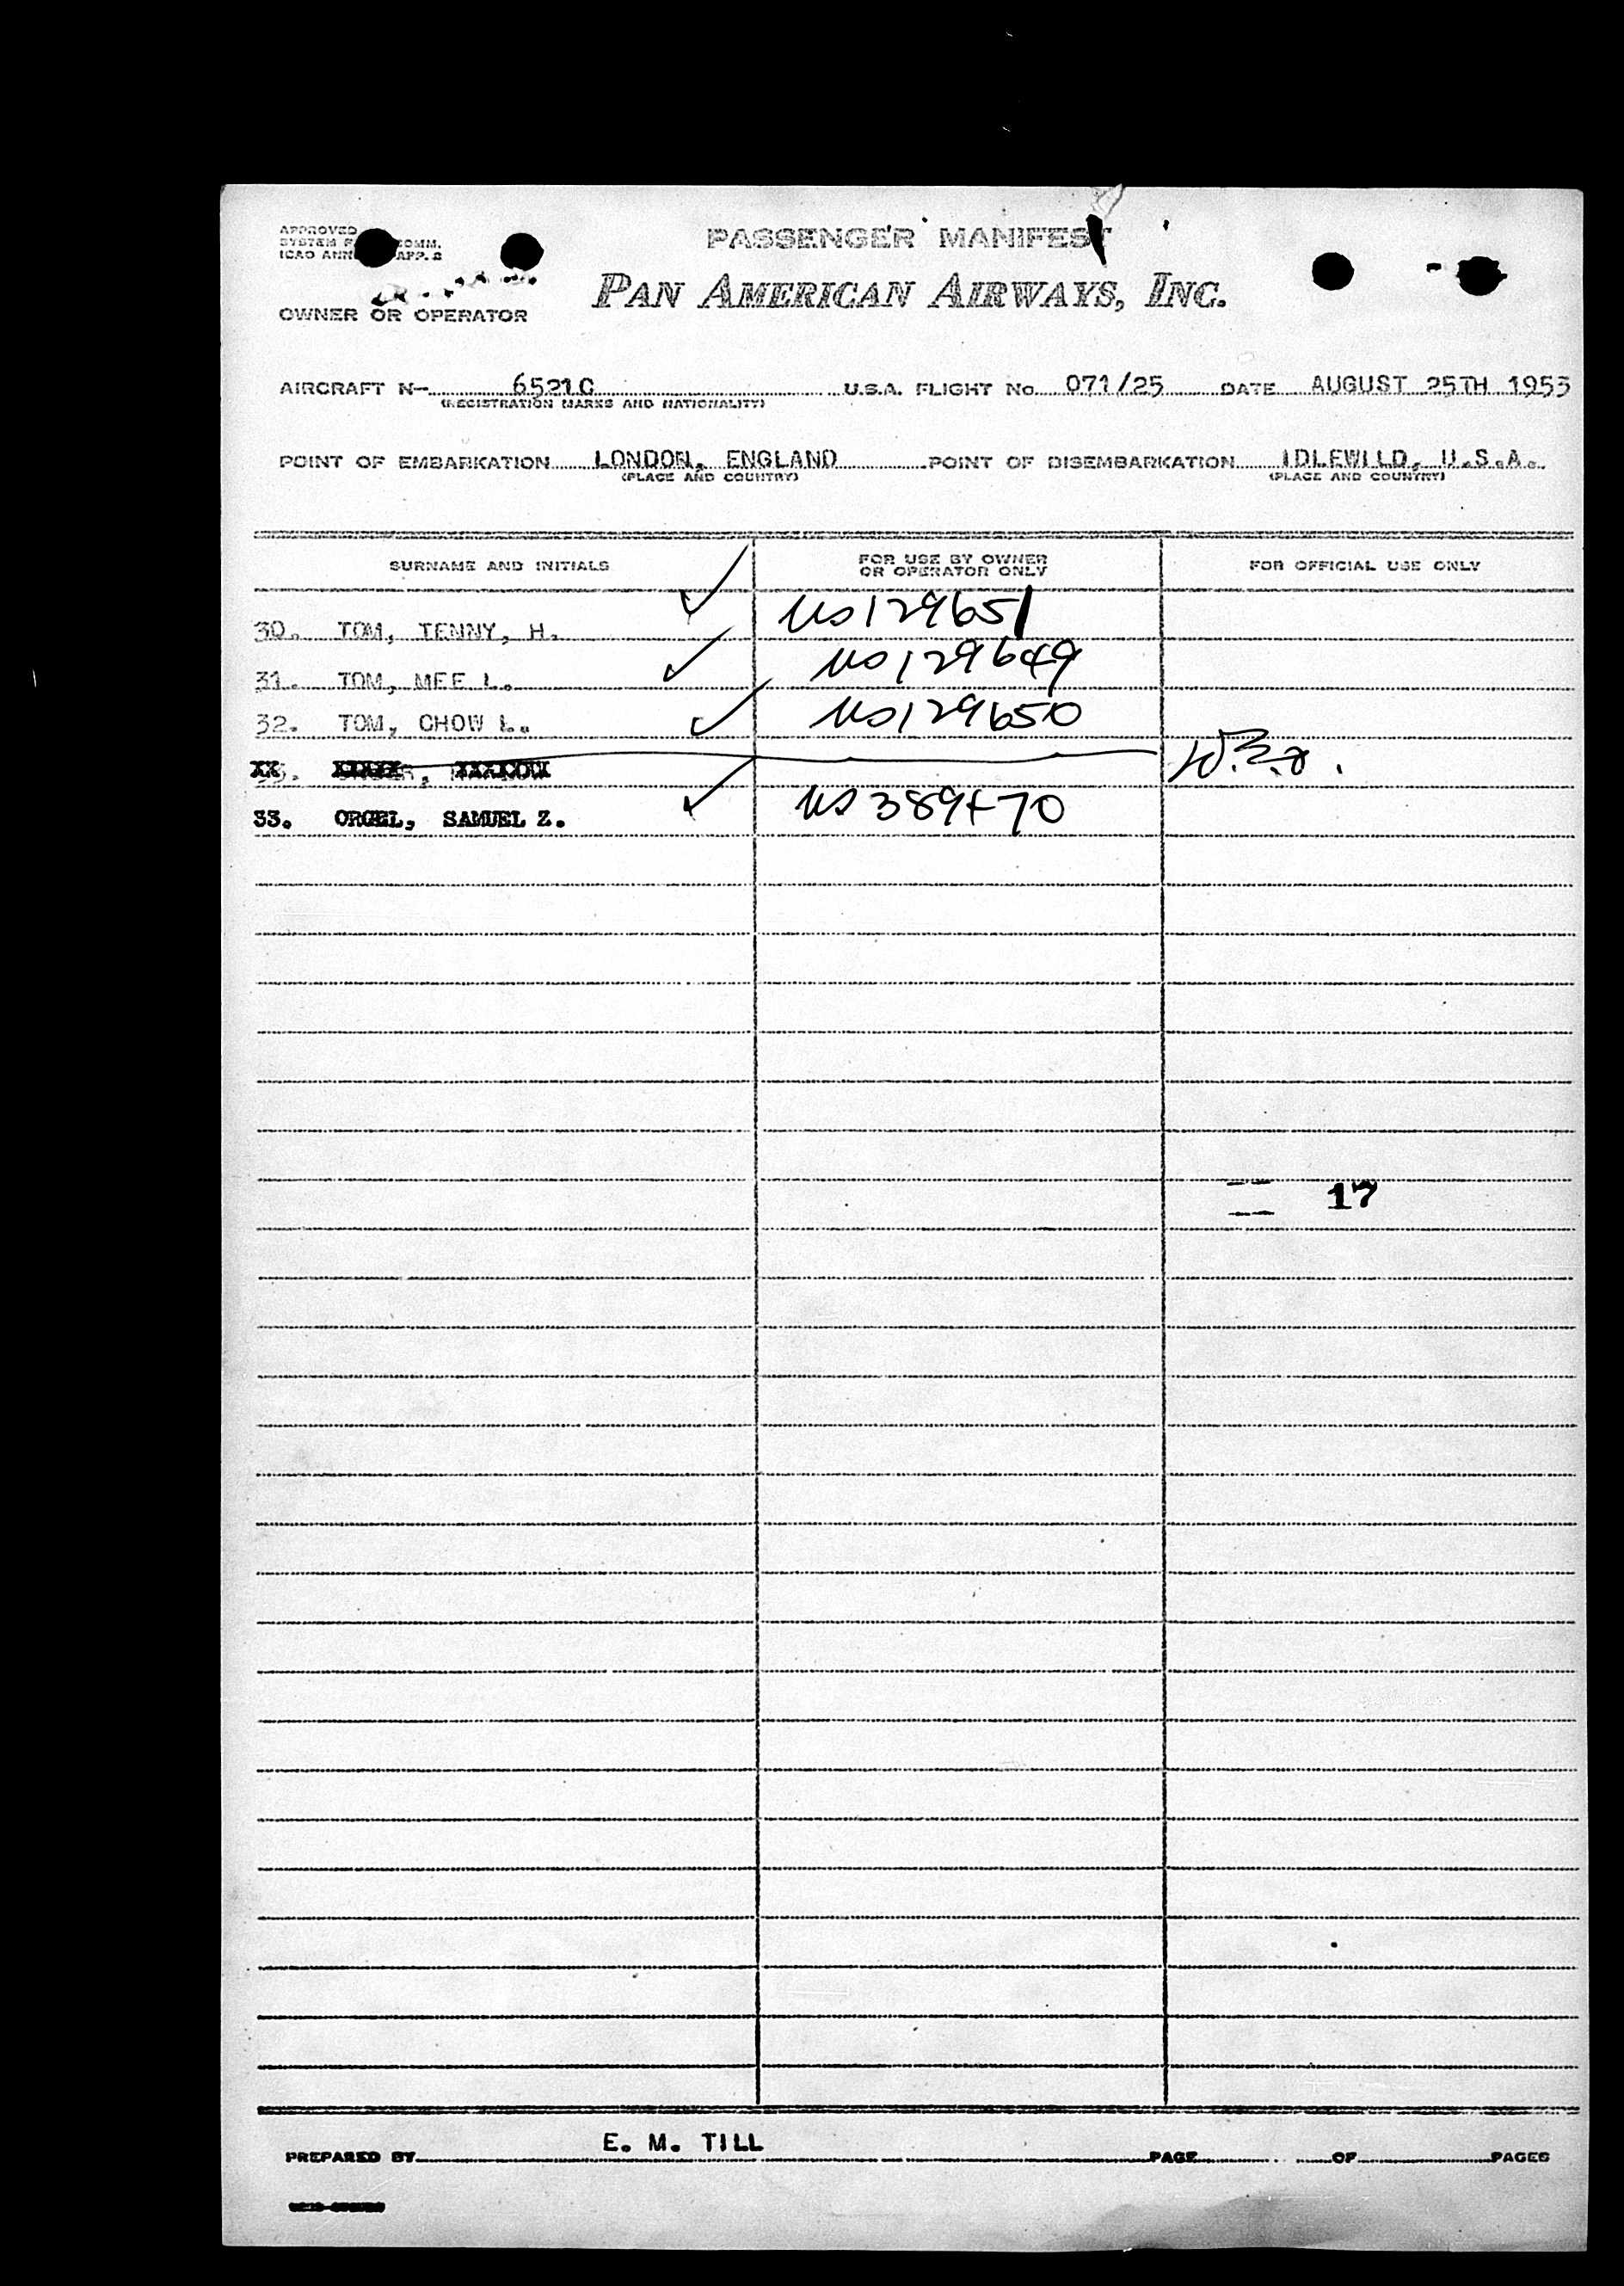 APPROVED PASSENGER MANIFEST
SYSTEM COMM.
ICAO ANN APP. 2
PAN AMERICAN AIRWAYS, INC.
OWNER OR OPERATOR
AIRCRAFT N- 6521C U.S.A. FLIGHT No 071/25 DATE AUGUST 25TH 1953
(REGISTRATION MARKS AND NATIONALITY)
POINT OF EMBARKATION LONDON, ENGLAND POINT OF DISEMBARKATION IDLEWILD, U.S.A.
(PLACE AND COUNTRY) (PLACE AND COUNTRY)
SURNAME AND INITIALS FOR USE BY OWNER OR OPERATOR ONLY FOR OFFICIAL USE ONLY
30. TOM, TENNY, H. US 129651
31. TOM, MEE L. US 129649
32. TOM, CHOW L. US 129650
33. ORGEL, SAMUEL Z. US 389470
17
PREPARED BY E. M. TILL PAGE OF PAGES